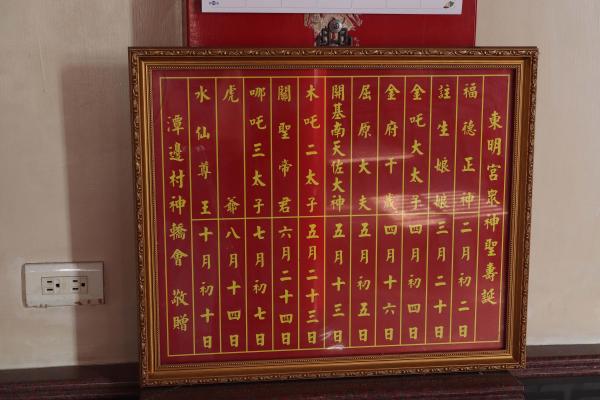 東明宮眾神聖壽誕
福德正神 二月初二日
註生娘娘 三月二十日
金吒大太子 四月初四日
金府十歲 四月十六日
屈原大夫 五月初五日
開基南天佐大神 五月十三日
木吒二太子 五月二十三日
關聖帝君 六月二十四日
哪吒三太子 七月初七日
虎爺 八月十四日
水仙尊王 十月初十日
潭邊村神轎會 敬贈